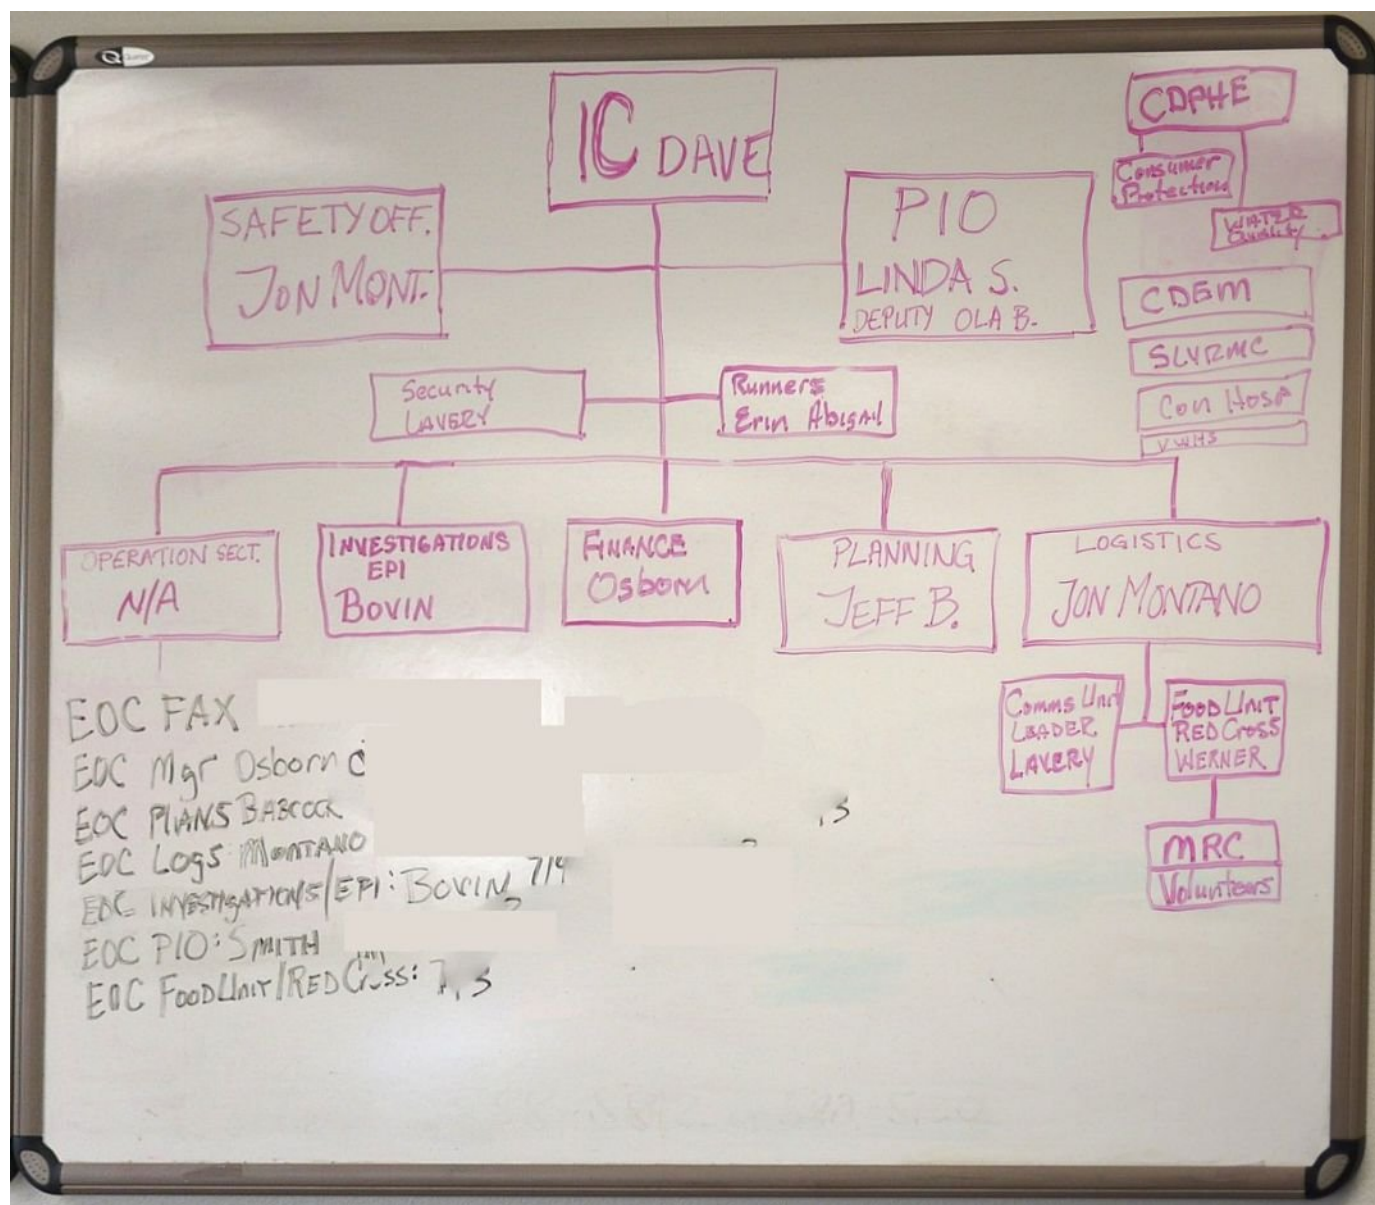 IC DAVE
SAFETY OFF.
JON MONT.
PIO
LINDA S.
DEPUTY OLA B.
CDPHE
Consumer
Protection
WATER
Quality
CDEM
SLVRMC
Con Hosp
VWHS
Security
LAVERY
Runners
Erin Abigail
OPERATION SECT.
N/A
INVESTIGATIONS
EPI
BOVIN
FINANCE
Osborn
PLANNING
JEFF B.
LOGISTICS
JON MONTANO
Comms Unit
LEADER
LAVERY
FOOD UNIT
RED CROSS
WERNER
MRC
Volunteers
EOC FAX
EOC Mgr Osborn C
EOC PLANS BABCOCK
EOC Logs MONTANO
EOC INVESTIGATIONS/EPI: BOVIN 719
EOC PIO: SMITH
EOC FOOD UNIT/RED CROSS: